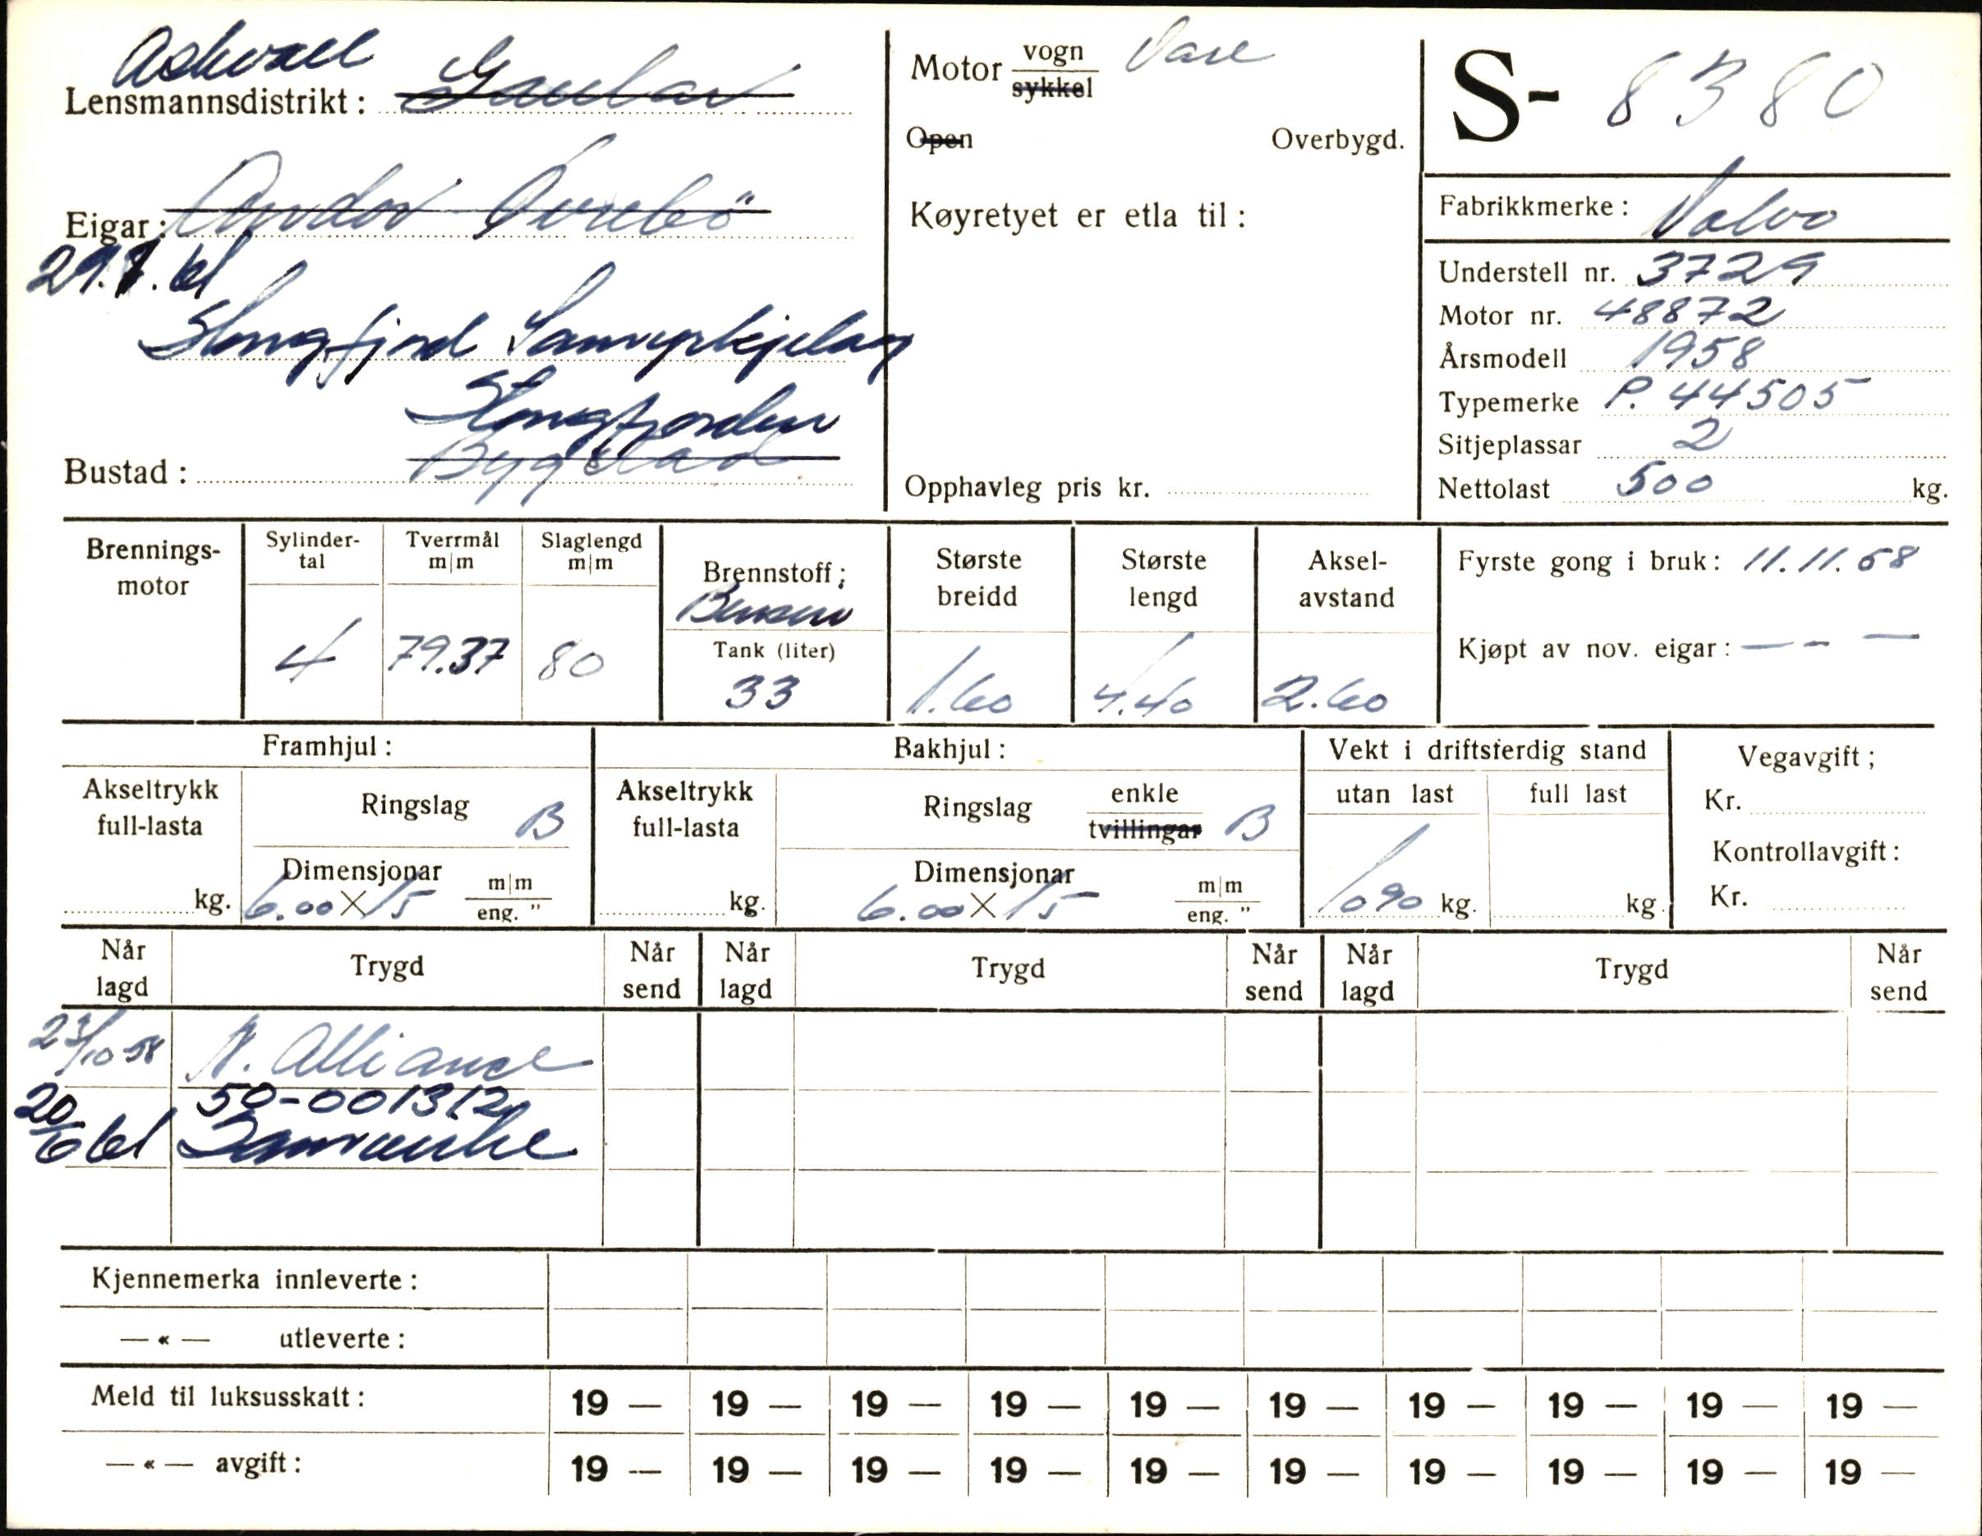 Askvoll
Lensmannsdistrikt: Gaular
Eigar: Andor Övrebö
29.7.61
Stongfjord Samyrkjelag
Stongfjorden
Bustad: Bygstad
Motor vogn Vare
sykkel
Open Overbygd.
Køyretyet er etla til:
Opphavleg pris kr.
S- 8380
Fabrikkmerke: Volvo
Understell nr. 3729
Motor nr. 48872
Årsmodell 1958
Typemerke P. 44505
Sitjeplassar 2
Nettolast 500 kg.
Brennings-motor
Sylinder-tal 4
Tverrmål m|m 79.37
Slaglengd m|m 80
Brennstoff; Bensin
Tank (liter) 33
Største breidd 1.60
Største lengd 4.40
Aksel-avstand 2.60
Fyrste gong i bruk: 11.11.58
Kjøpt av nov. eigar: — - —
Framhjul:
Akseltrykk full-lasta kg.
Ringslag B
Dimensjonar 6.00 X 15 m|m eng. "
Bakhjul:
Akseltrykk full-lasta kg.
Ringslag enkle tvillingar B
Dimensjonar 6.00 X 15 m|m eng. "
Vekt i driftsferdig stand
utan last 1090 kg.
full last kg.
Vegavgift;
Kr.
Kontrollavgift:
Kr.
Når lagd Trygd Når send Når lagd Trygd Når send Når lagd Trygd Når send
23/10-58 N. Alliance
50-001312
20/6 61 Samvirke
Kjennemerka innleverte:
— « — utleverte:
Meld til luksusskatt: 19 — 19 — 19 — 19 — 19 — 19 — 19 — 19 — 19 — 19 —
— « — avgift: 19 — 19 — 19 — 19 — 19 — 19 — 19 — 19 — 19 — 19 —